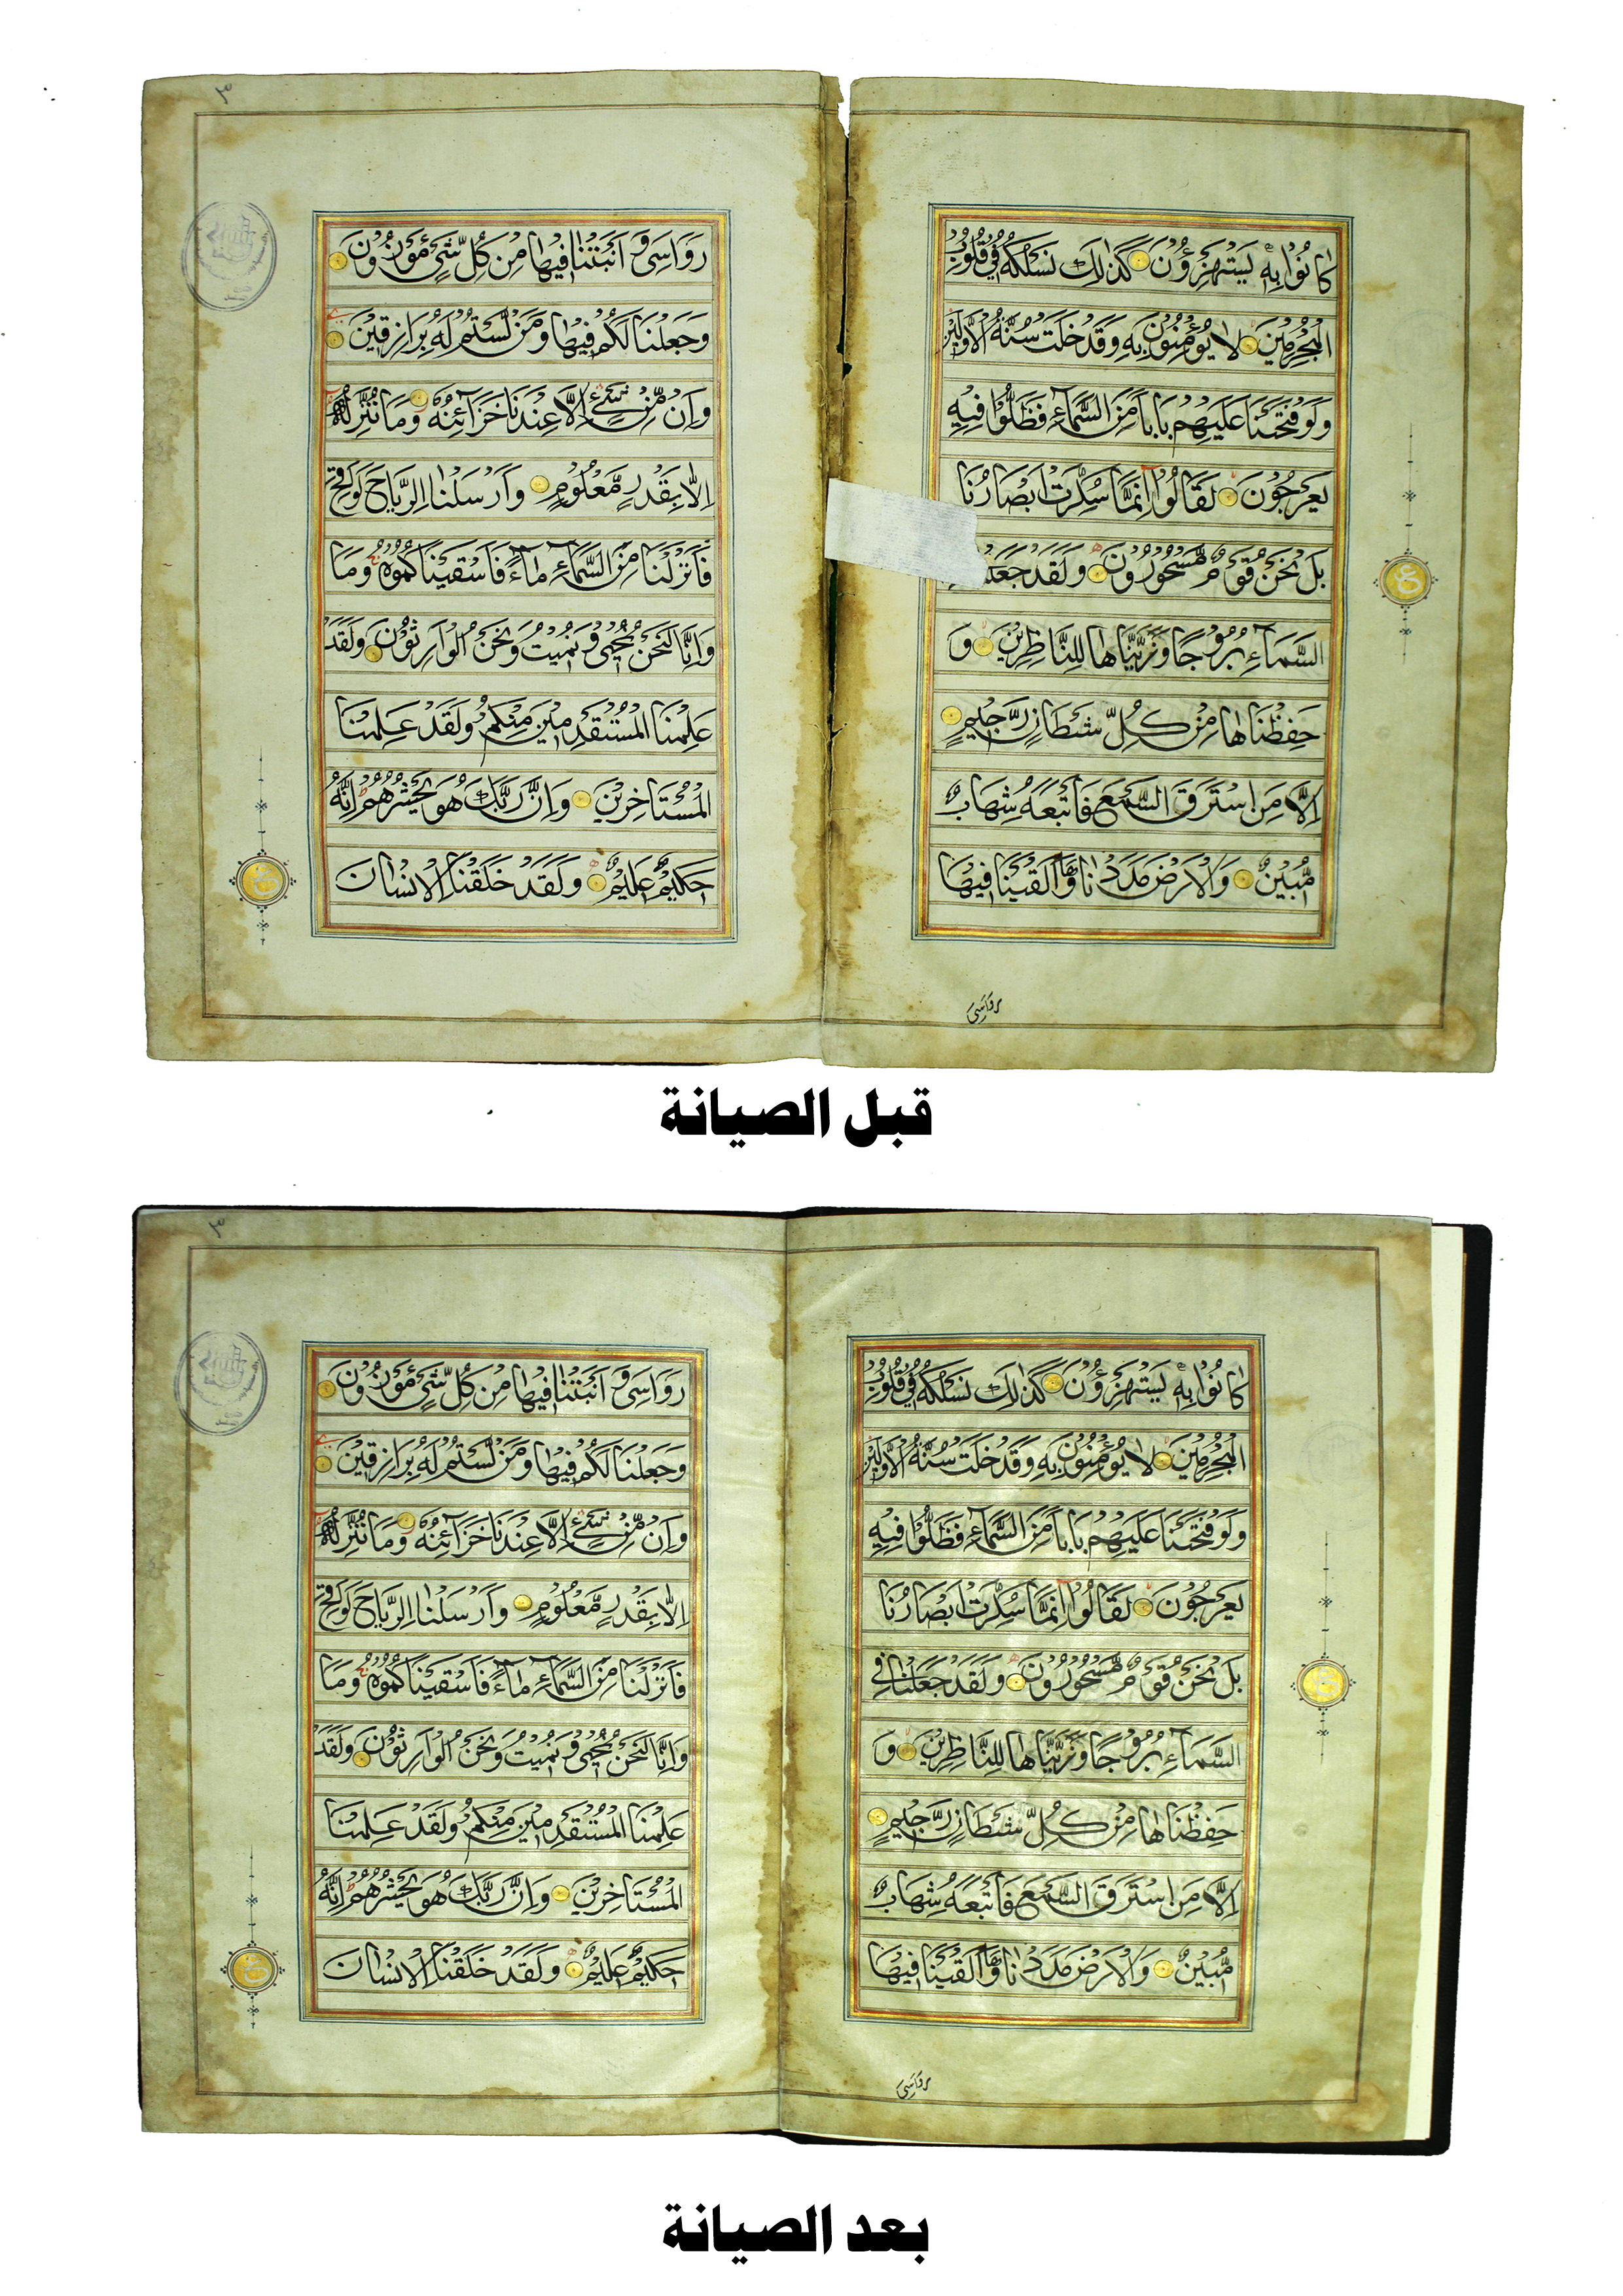 كَانُوْا بِهٖ يَسْتَهْزِءُوْنَ كَذٰلِكَ نَسْلُكُهُ فِيْ قُلُوْبِ
الْمُجْرِمِيْنَ لَا يُؤْمِنُوْنَ بِهِ وَقَدْ خَلَتْ سُنَّةُ الْاَوَّلِيْنَ
وَلَوْ فَتَحْنَا عَلَيْهِمْ بَابًا مِنَ السَّمَآءِ فَظَلُّوْا فِيْهِ
يَعْرُجُوْنَ لَقَالُوْا اِنَّمَا سُكِّرَتْ اَبْصَارُنَا
بَلْ نَحْنُ قَوْمٌ مَّسْحُوْرُوْنَ وَلَقَدْ
السَّمَآءِ بُرُوْجًا وَزَيَّنَّاهَا لِلنَّاظِرِيْنَ وَ
حَفِظْنَاهَا مِنْ كُلِّ شَيْطَانٍ رَّجِيْمٍ
اِلَّا مَنِ اسْتَرَقَ السَّمْعَ فَاَتْبَعَهُ شِهَابٌ
مُّبِيْنٌ وَالْاَرْضَ مَدَدْنَاهَا وَاَلْقَيْنَا فِيْهَا
رَوَاسِيَ
رَوَاسِيَ وَ اَنْبَتْنَا فِيْهَا مِنْ كُلِّ شَيْءٍ مَوْزُوْنٍ
وَجَعَلْنَا لَكُمْ فِيْهَا وَمَنْ لَّسْتُمْ لَهُ بِرَازِقِيْنَ
وَاِنْ مِّنْ شَيْءٍ اِلَّا عِنْدَنَا خَزَآئِنُهُ وَمَا نُنَزِّلُهُ
اِلَّا بِقَدَرٍ مَّعْلُوْمٍ وَاَرْسَلْنَا الرِّيَاحَ لَوَاقِحَ
فَاَنْزَلْنَا مِنَ السَّمَآءِ مَآءً فَاَسْقَيْنَاكُمُوْهُ وَمَا
وَاِنَّا لَنَحْنُ نُحْيِيْ وَنُمِيْتُ وَنَحْنُ الْوَارِثُوْنَ وَلَقَدْ
عَلِمْنَا الْمُسْتَقْدِمِيْنَ مِنْكُمْ وَلَقَدْ عَلِمْنَا
الْمُسْتَاْخِرِيْنَ وَاِنَّ رَبَّكَ هُوَ يَحْشُرُهُمْ اِنَّهُ
حَكِيْمٌ عَلِيْمٌ وَلَقَدْ خَلَقْنَا الْاِنْسَانَ
قبل الصيانة
كَانُوْا بِهٖ يَسْتَهْزِءُوْنَ كَذٰلِكَ نَسْلُكُهُ فِيْ قُلُوْبِ
الْمُجْرِمِيْنَ لَا يُؤْمِنُوْنَ بِهِ وَقَدْ خَلَتْ سُنَّةُ الْاَوَّلِيْنَ
وَلَوْ فَتَحْنَا عَلَيْهِمْ بَابًا مِنَ السَّمَآءِ فَظَلُّوْا فِيْهِ
يَعْرُجُوْنَ لَقَالُوْا اِنَّمَا سُكِّرَتْ اَبْصَارُنَا
بَلْ نَحْنُ قَوْمٌ مَّسْحُوْرُوْنَ وَلَقَدْ جَعَلْنَا فِي
السَّمَآءِ بُرُوْجًا وَزَيَّنَّاهَا لِلنَّاظِرِيْنَ وَ
حَفِظْنَاهَا مِنْ كُلِّ شَيْطَانٍ رَّجِيْمٍ
اِلَّا مَنِ اسْتَرَقَ السَّمْعَ فَاَتْبَعَهُ شِهَابٌ
مُّبِيْنٌ وَالْاَرْضَ مَدَدْنَاهَا وَاَلْقَيْنَا فِيْهَا
رَوَاسِيَ
رَوَاسِيَ وَ اَنْبَتْنَا فِيْهَا مِنْ كُلِّ شَيْءٍ مَوْزُوْنٍ
وَجَعَلْنَا لَكُمْ فِيْهَا وَمَنْ لَّسْتُمْ لَهُ بِرَازِقِيْنَ
وَاِنْ مِّنْ شَيْءٍ اِلَّا عِنْدَنَا خَزَآئِنُهُ وَمَا نُنَزِّلُهُ
اِلَّا بِقَدَرٍ مَّعْلُوْمٍ وَاَرْسَلْنَا الرِّيَاحَ لَوَاقِحَ
فَاَنْزَلْنَا مِنَ السَّمَآءِ مَآءً فَاَسْقَيْنَاكُمُوْهُ وَمَا
وَاِنَّا لَنَحْنُ نُحْيِيْ وَنُمِيْتُ وَنَحْنُ الْوَارِثُوْنَ وَلَقَدْ
عَلِمْنَا الْمُسْتَقْدِمِيْنَ مِنْكُمْ وَلَقَدْ عَلِمْنَا
الْمُسْتَاْخِرِيْنَ وَاِنَّ رَبَّكَ هُوَ يَحْشُرُهُمْ اِنَّهُ
حَكِيْمٌ عَلِيْمٌ وَلَقَدْ خَلَقْنَا الْاِنْسَانَ
بعد الصيانة